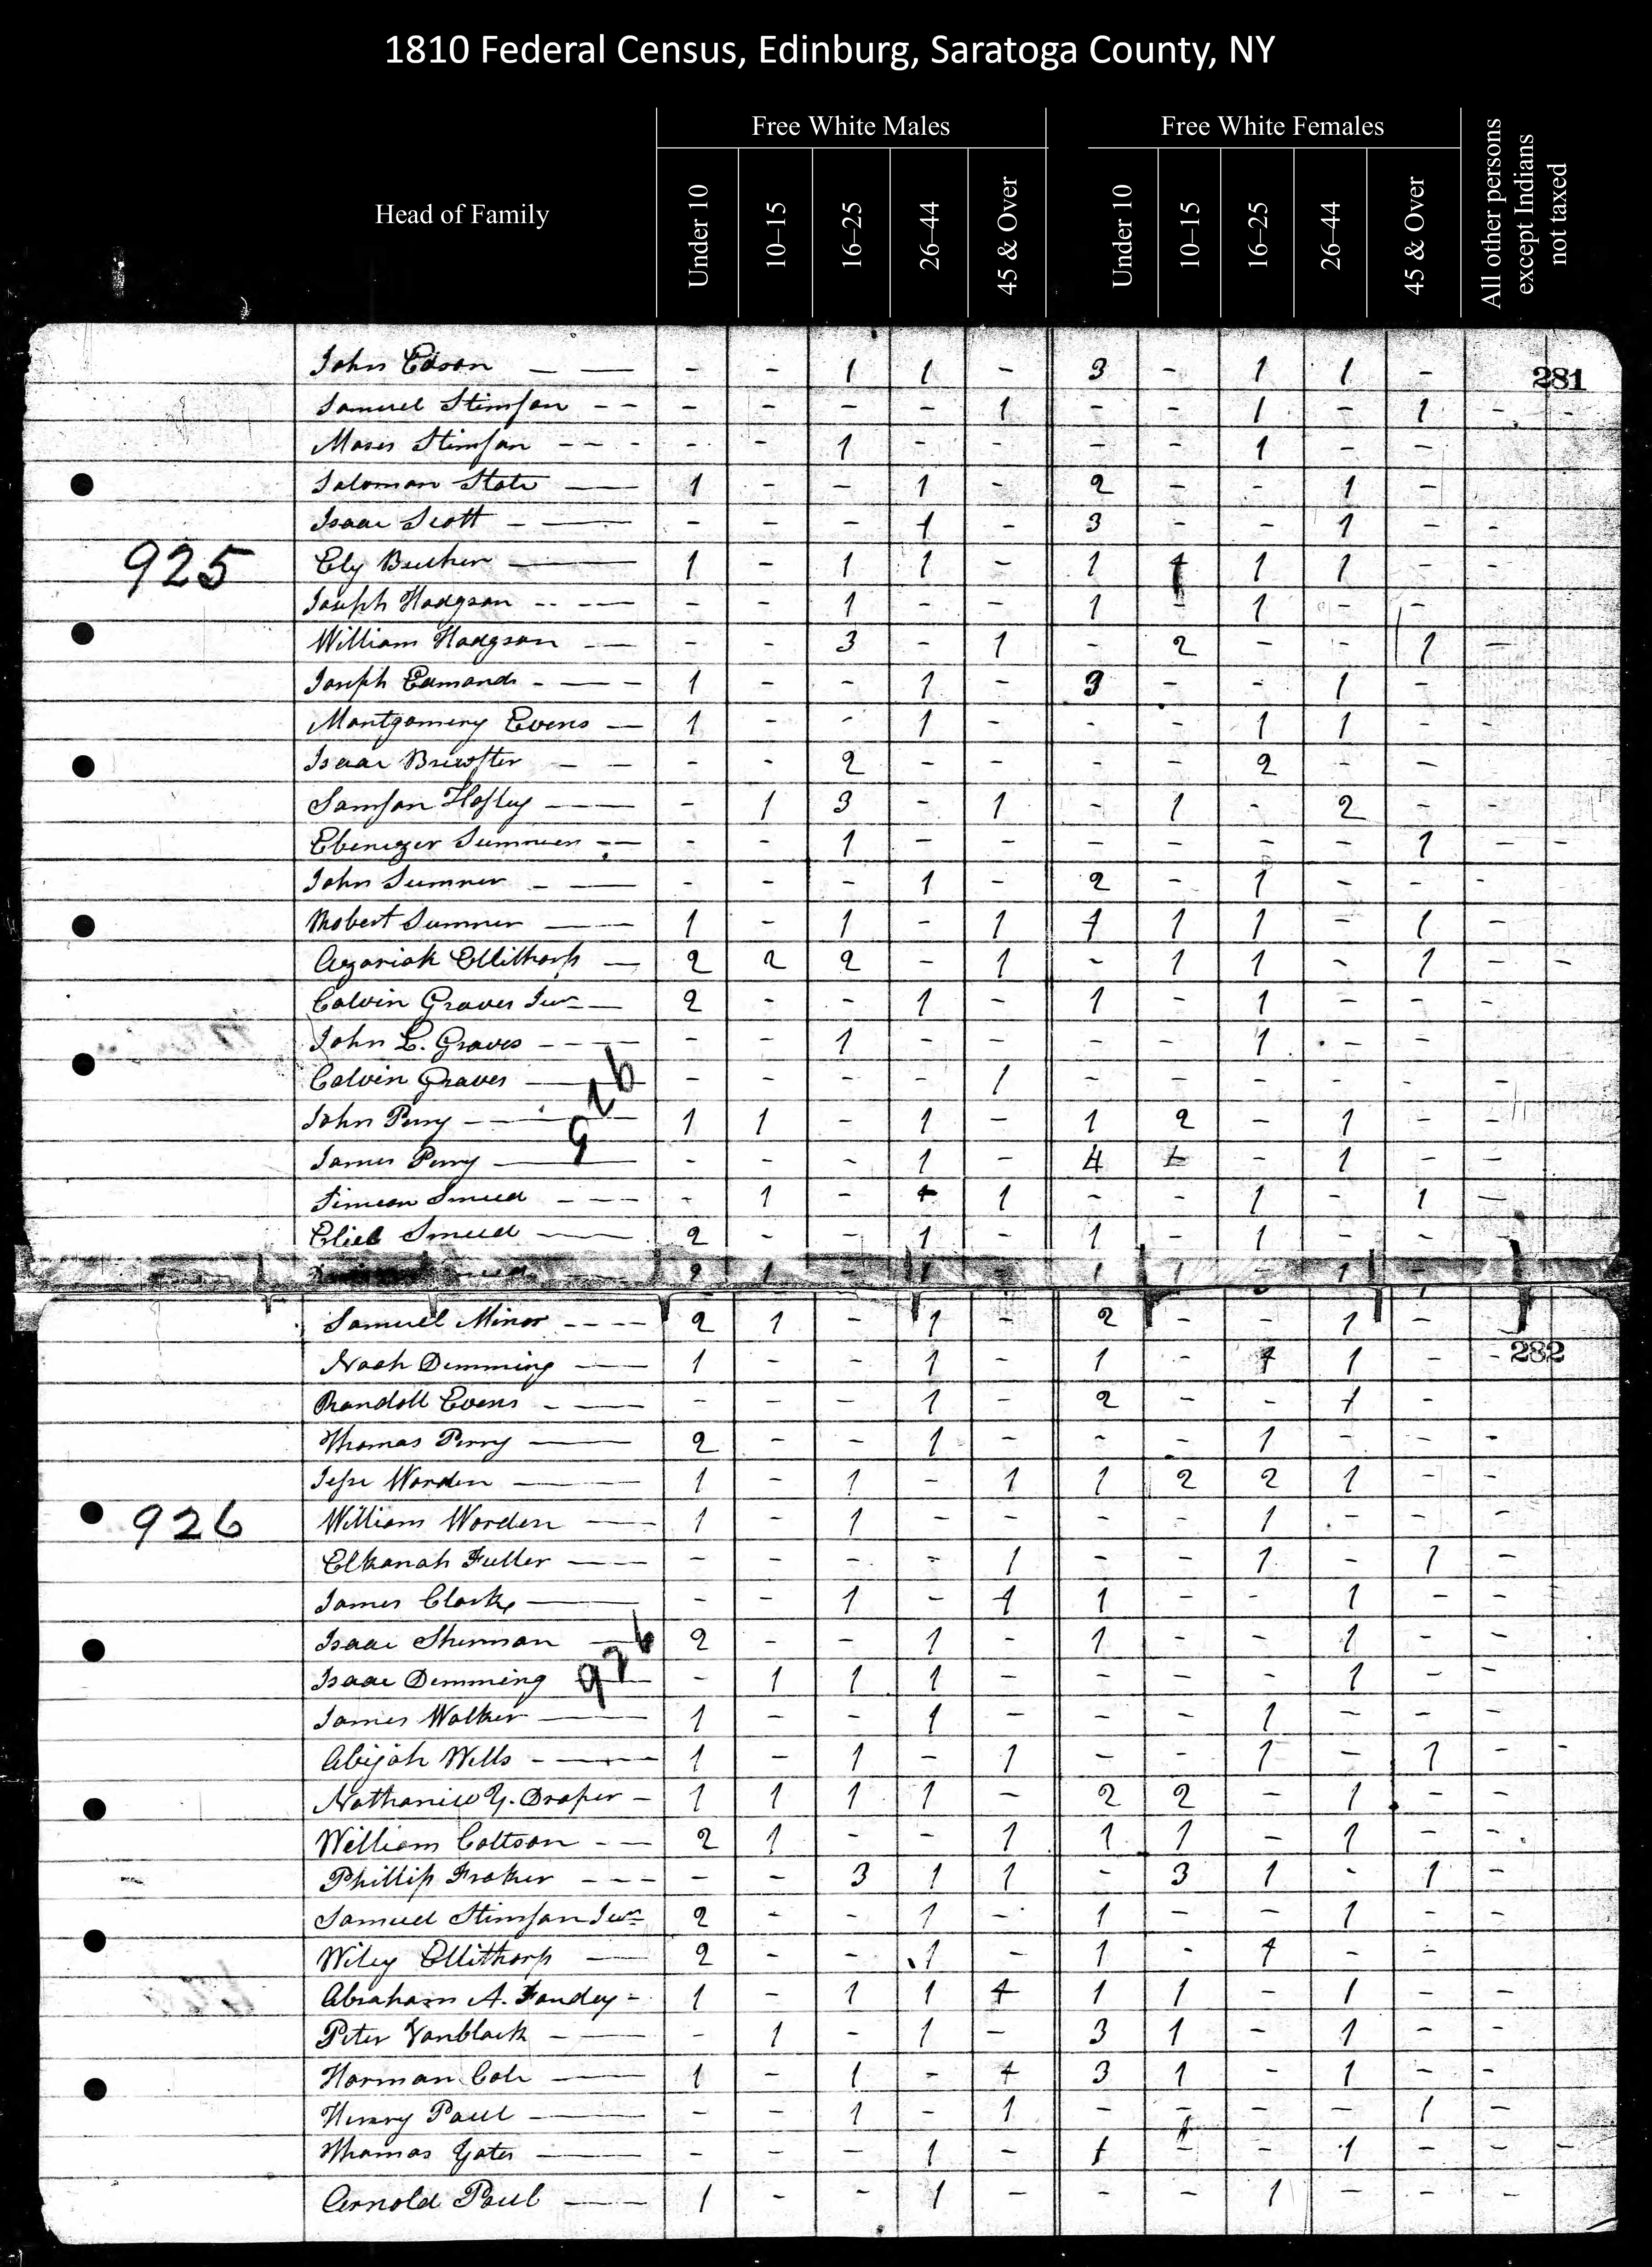 1810 Federal Census, Edinburg, Saratoga County, NY
Free White Males Free White Females All other persons except Indians not taxed
Head of Family Under 10 10–15 16–25 26–44 45 & Over Under 10 10–15 16–25 26–44 45 & Over
John Edson - - 1 1 - 3 - 1 1 - 281
Samuel Stimson - - - - 1 - - 1 - 1 - -
Moses Stimson - - 1 - - - - 1 - -
Soloman State 1 - - 1 - 2 - - 1 -
Isaac Scott - - - 1 - 3 - - 1 - -
925 Ely Beecher 1 - 1 1 - 1 1 1 1 - -
Joseph Hodgson - - 1 - - 1 - 1 - -
William Hodgson - - 3 - 1 - 2 - - 1 -
Joseph Edmonds 1 - - 1 - 3 - - 1 -
Montgomery Evens 1 - - 1 - - - 1 1 - -
Isaac Brewster - - 2 - - - - 2 - -
Samson Hosley - 1 3 - 1 - 1 - 2 - -
Ebenezer Sumner - - 1 - - - - - - 1 - -
John Sumner - - - 1 - 2 - 1 - - -
Robert Sumner 1 - 1 - 1 1 1 1 - 1 -
Azariah Ellithorp 2 2 2 - 1 - 1 1 - 1 - -
Calvin Graves Junr 2 - - 1 - 1 - 1 - - -
John L. Graves - - 1 - - - - 1 - -
Calvin Graves - - - - 1 - - - - - -
926
John Perry 1 1 - 1 - 1 2 - 1 - -
James Perry - - - 1 - 4 - 1 - -
Simeon Smeed - 1 - 1 1 - - 1 - 1 -
Eliel Smeed 2 - - 1 - 1 - 1 - -
2 1 - 1 - 1 1 - 1 -
Samuel Minor 2 1 - 1 - 2 - - 1 -
Noah Demming 1 - - 1 - 1 - 1 1 - - 282
Randall Evens - - - 1 - 2 - - 1 -
Thomas Perry 2 - - 1 - - - 1 - - -
Jesse Worden 1 - 1 - 1 1 2 2 1 - -
926 William Worden 1 - 1 - - - - 1 - - -
Elkanah Fuller - - - - 1 - - 1 - 1 -
James Clark - - 1 - 1 1 - - 1 - -
Isaac Sherman 2 - - 1 - 1 - - 1 - -
926
Isaac Demming - 1 1 1 - - - 1 - -
James Walker 1 - - 1 - - - 1 - - -
Abijah Wells 1 - 1 - 1 - - 1 - 1 - -
Nathaniel Y. Draper 1 1 1 1 - 2 2 - 1 - -
William Coltson 2 1 - - 1 1 1 - 1 - -
Phillip Fraker - - 3 1 1 - 3 1 - 1 -
Samuel Stimson Junr 2 - - 1 - 1 - - 1 - -
Wiley Ellithorp 2 - - 1 - 1 - 1 - -
Abraham A. Fondey 1 - 1 1 1 1 1 - 1 - -
Peter Vanblack - 1 - 1 - 3 1 - 1 - -
Harman Cole 1 - 1 - 1 3 1 - 1 - -
Henry Paul - - 1 - 1 - - - - 1 -
Thomas Yates - - - 1 - 1 - - 1 - - -
Arnold Paul 1 - - 1 - - - 1 - - -